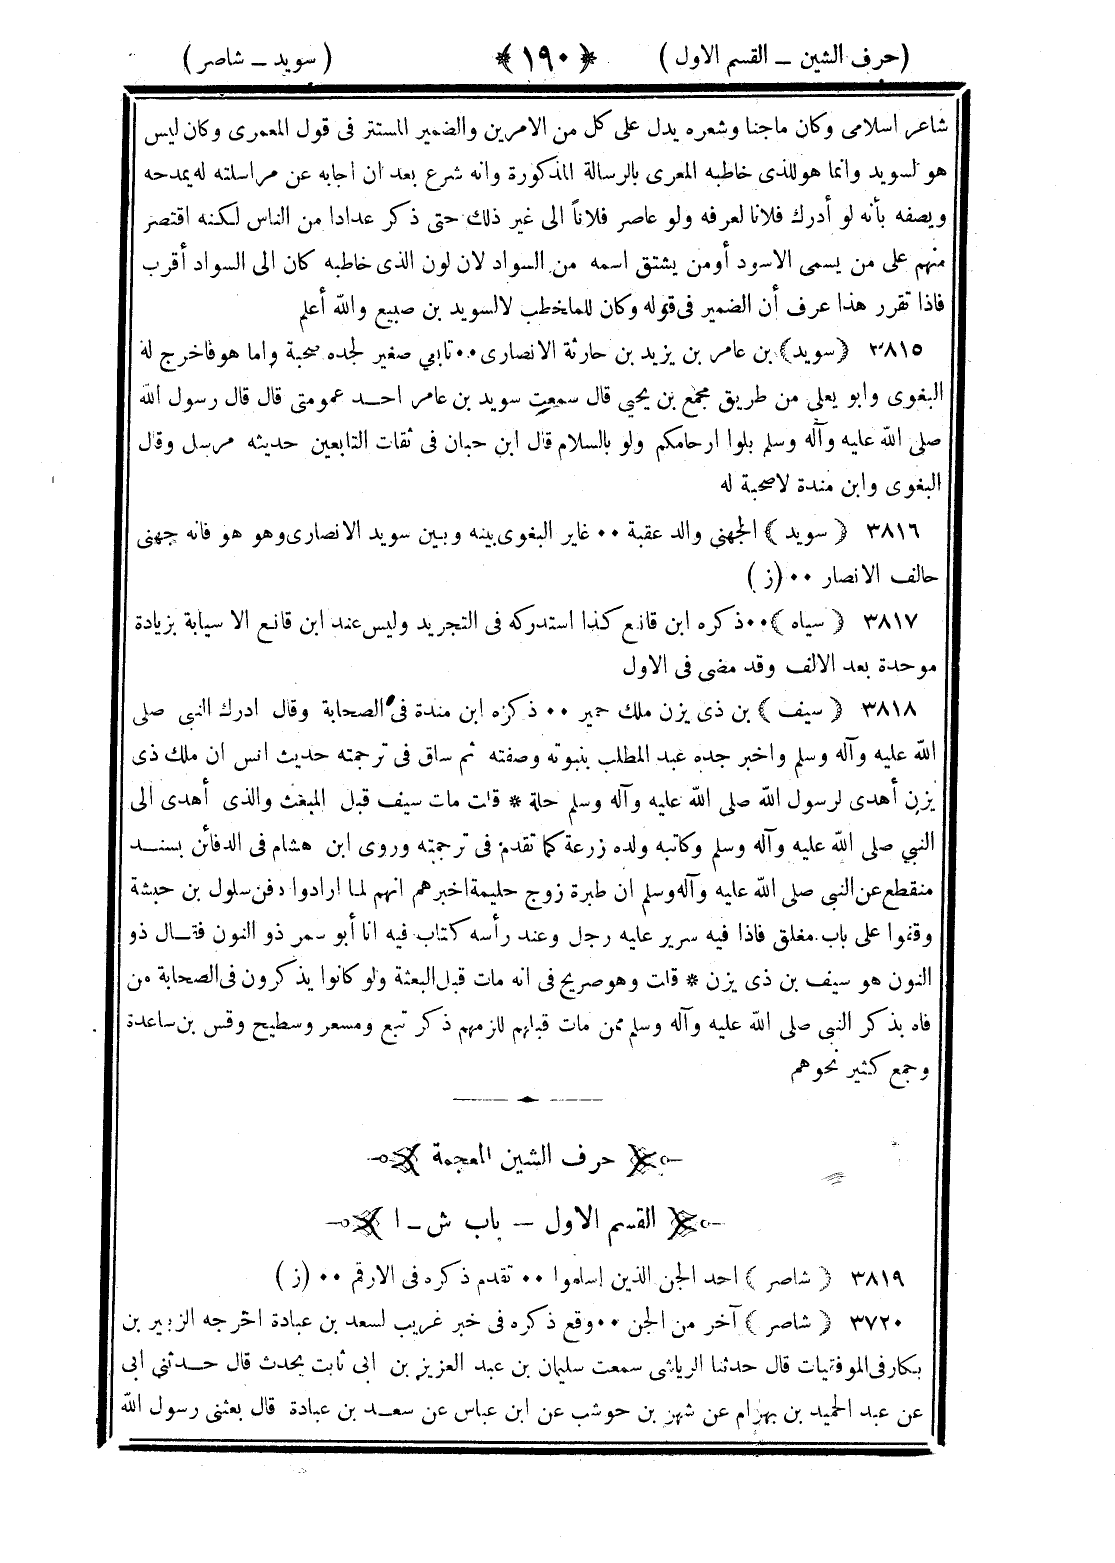 (حرف الشين ــ القسم الاول) ﴿ ١٩٠ ﴾ (سويد ــ شاصر)
شاعر اسلامى وكان ماجنا وشعره يدل على كل من الامرين والضمير المستتر فى قول المعمرى وكان ليس
هو لسويد وانما هو للذى خاطبه المعرى بالرسالة المذكورة وانه شرع بعد ان اجابه عن مراسلته له يمدحه
ويصفه بأنه لو أدرك فلانا لعرفه ولو عاصر فلاناً الى غير ذلك حتى ذكر عدادا من الناس لكنه اقتصر
منهم على من يسمى الاسود أومن يشتق اسمه من السواد لان لون الذى خاطبه كان الى السواد أقرب
فاذا تقرر هذا عرف أن الضمير فى قوله وكان للمخاطب لالسويد بن صبيع والله أعلم
٣٨١٥ ﴿ سويد ﴾ بن عامر بن يزيد بن حارثة الانصارى ٠٠ تابعي صغير لجده صحبة واما هو فاخرج له
البغوى وابو يعلى من طريق مجمع بن يحيي قال سمعت سويد بن عامر احـد عمومتى قال قال رسول الله
صلى الله عليه وآله وسلم بلوا ارحامكم ولو بالسلام قال ابن حبان فى ثقات التابعين حديثه مرسل وقال
البغوى وابن مندة لاصحبة له
٣٨١٦ ﴿ سويد ﴾ الجهنى والد عقبة ٠٠ غاير البغوى بينه وبين سويد الانصارى وهو هو فانه جهنى
حالف الانصار ٠٠ (ز)
٣٨١٧ ﴿ سياه ﴾ ٠٠ ذكره ابن قانع كذا استدركه فى التجريد وليس عند ابن قانع الا سيابة بزيادة
موحدة بعد الالف وقد مضى فى الاول
٣٨١٨ ﴿ سيف ﴾ بن ذى يزن ملك حمير ٠٠ ذكره ابن مندة فى الصحابة وقال ادرك النبى صلى
الله عليه وآله وسلم واخبر جده عبد المطلب بنبوته وصفته ثم ساق فى ترجمته حديث انس ان ملك ذى
يزن أهدى لرسول الله صلى الله عليه وآله وسلم حلة * قلت مات سيف قبل المبعث والذى أهدى الى
النبي صلى الله عليه وآله وسلم وكاتبه ولده زرعة كما تقدم فى ترجمته وروى ابن هشام فى الدفائن بسنـد
منقطع عن النبى صلى الله عليه وآله وسلم ان طبرة زوج حليمة اخبرهم انهم لما ارادوا دفن سلول بن حبشة
وقفوا على باب مغلق فاذا فيه سرير عليه رجل وعند رأسه كتاب فيه انا أبو سمر ذو النون فقـال ذو
النون هو سيف بن ذى يزن * قلت وهو صريح فى انه مات قبل البعثة ولو كانوا يذكرون فى الصحابة من
فاه بذكر النبى صلى الله عليه وآله وسلم ممن مات قبلهم للزمهم ذكر تبع ومسعر وسطيح وقس بن ساعدة
وجمع كثير نحوهم
حرف الشين المعجمة
القسم الاول — باب ش ــ ا
٣٨١٩ ﴿ شاصر ﴾ احد الجن الذين اسلموا ٠٠ تقدم ذكره فى الارقم ٠٠ (ز)
٣٧٢٠ ﴿ شاصر ﴾ آخر من الجن ٠٠ وقع ذكره فى خبر غريب لسعد بن عبادة اخرجه الزبير بن
بكار فى الموفقيات قال حدثنا الرياشى سمعت سليمان بن عبد العزيز بن ابى ثابت يحدث قال حـدثني ابى
عن عبد الحميد بن بهرام عن شهر بن حوشب عن ابن عباس عن سعـد بن عبادة قال بعثنى رسول الله